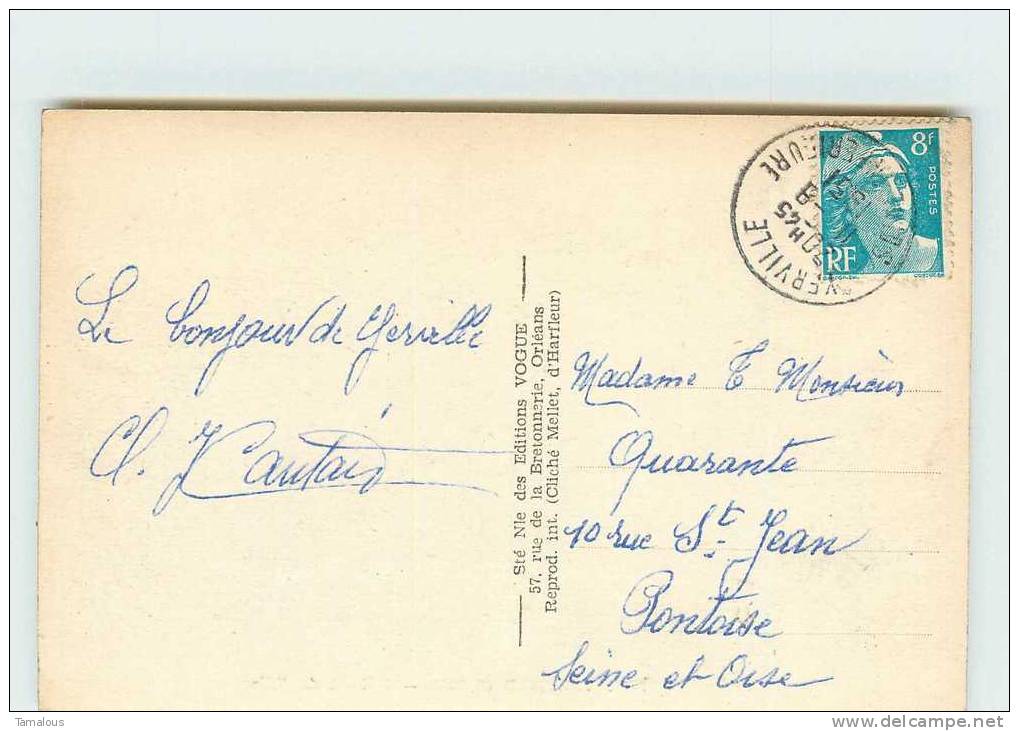 Le bonjour de Yerville
Cl.
Sté Nle des Editions VOGUE
57, rue de la Bretonnerie, Orléans
Reprod. int. (Cliché Mellet, d'Harfleur)
8f
POSTES
RF
YERVILLE
20H45
INFERIEURE
Madame & Monsieur
Quarante
10 rue St. Jean
Pontoise
Seine et Oise
Tamalous
www.delcampe.net